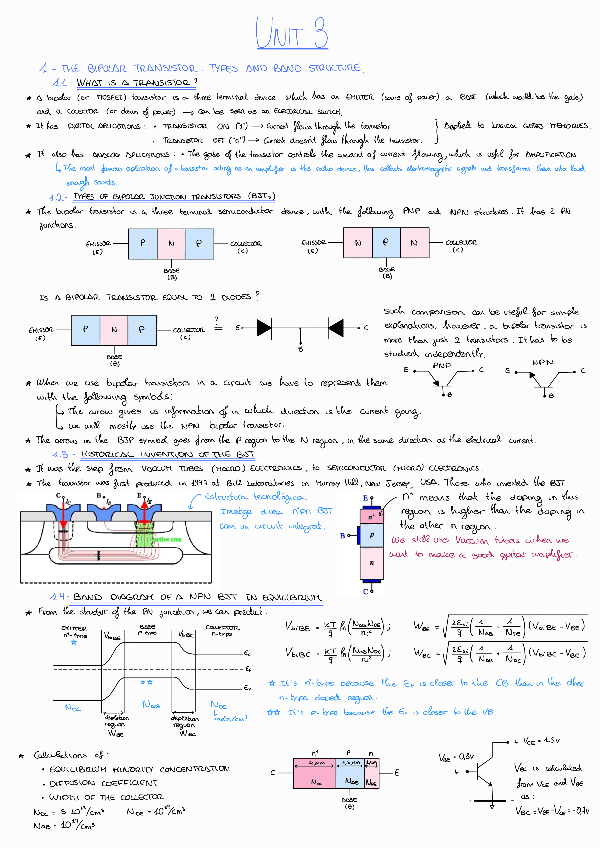 UNIT 3
1.- THE BIPOLAR TRANSISTOR. TYPES AND BAND STRUCTURE.
1.1.- WHAT IS A TRANSISTOR?
* A bipolar (or MOSFET) transistor is a three terminal device which has an EMITTER (source of power) a BASE (which would be the gate)
and a COLLECTOR (or drain of power) → can be seen as an ELECTRICAL SWITCH.
* It has DIGITAL APLICATIONS: • TRANSISTOR ON ("1") → Current flows through the transistor
• TRANSISTOR OFF ("0") → Current doesn't flow through the transistor.
Applied to LOGICAL GATES MEMORIES.
* It also has ANALOG APLICATIONS: • The gate of the transistor controls the amount of current flowing, which is usefil for AMPLIFICATION
↳ The most famous aplication of a transistor acting as an amplifier is the radio device, this collects electromagnetic signals and transforms them into loud
enough sounds.
1.2.- TYPES OF BIPOLAR JUNCTION TRANSISTORS (BJTs)
* The bipolar transistor is a three terminal semiconductor device, with the following PNP and NPN structures. It has 2 PN
junctions.
EMISSOR (E) P N P COLLECTOR (C)
BASE (B)
EMISSOR (E) N P N COLLECTOR (C)
BASE (B)
IS A BIPOLAR TRANSISTOR EQUAL TO 2 DIODES?
EMISSOR (E) P N P COLLECTOR (C) ? = E C
BASE (B)
B
Such comparison can be useful for simple
explanations, however, a bipolar transistor is
more than just 2 transistors. It has to be
studied independently.
PNP NPN
E C E C
B B
* When we use bipolar transistors in a circuit we have to represent them
with the following symbols:
↳ The arrow gives us information of in which direction is the current going.
↳ we will mostly use the NPN bipolar transistor.
* The arrows in the BJP symbol goes from the P region to the N region, in the same direction as the electrical current.
1.3 - HISTORICAL INVENTION OF THE BJT
* It was the step from VACUUM TUBES (MACRO) ELECTRONICS, to SEMICONDUCTOR (MICRO) ELECTRONICS.
* The transistor was first produced in 1947 at Bell Laboratories in Murray Hill, New Jersey, USA. Those who invented the BJT
C B E
active area
Estructura tecnològica
Imatge d'un n⁺pn BJT
com un circuit integrat.
E
n⁺
B p
n
C
n⁺ means that the doping in this
region is higher than the doping in
the other n region.
We still use Vacuum tubes when we
want to make a good guitar amplifier.
1.4.- BAND DIAGRAM OF A NPN BJT IN EQUILIBRIUM
* From the structer of the PN junction, we can predict:
EMITTER n⁺-type BASE p-type COLLECTOR n-type
depletion region depletion region
W_BE W_BC
V_biBE = KT/q ln(N_AB N_DE / n_i²);
W_BE = √(2ε_s/q (1/N_AB + 1/N_DE)(V_biBE - V_BE)
V_biBC = KT/q ln(N_AB N_DC / n_i²);
W_BC = √(2ε_s/q (1/N_AB + 1/N_DC)(V_biBC - V_BC)
* It's n⁺-type because the E_F is closer to the CB than in the other
n-type doped region.
** It's p-type because the E_F is closer to the VB
* Calculations of:
• EQUILIBRIUM MINORITY CONCENTRATION
• DIFFUSION COEFFICIENT
• WIDTH OF THE COLLECTOR
N_AB = 10¹⁷/cm³
n⁺ P n
E C
BASE (B)
V_CE = 1.5V
V_BE = 0,8V
V_BC is calculated
from V_CE and V_BE
as:
V_BC = V_BE - V_CE = -0,7V